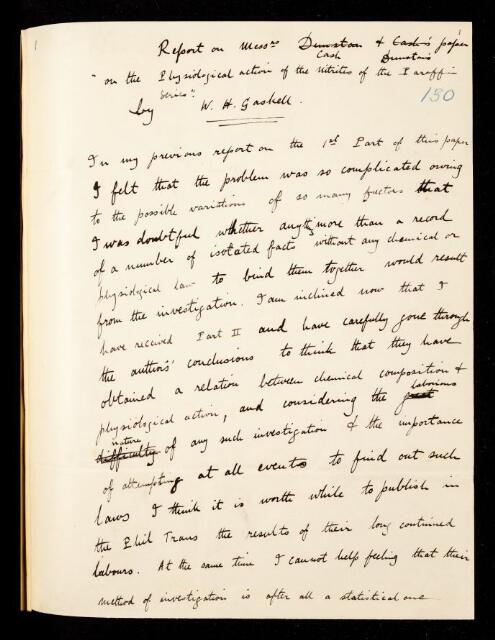 1
Report on Messrs Dunstan & Cash's paper
Cash Dunstan's
" on the Physiological action of the Nitrites of the Paraffin
Series "
by W. H. Gaskell.
130
In my previous report on the 1st Part of this paper
I felt that the problem was so complicated owing
to the possible variations of so many factors that
I was doubtful whether anything more than a record
of a number of isolated facts without any chemical or
physiological law to bind them together would result
from the investigation. I am inclined now that I
have received Part II and have carefully gone through
the authors' conclusions to think that they have
obtained a relation between chemical composition &
physiological action, and considering the great laborious
nature
difficulty of any such investigation & the importance
of attempting at all events to find out such
laws I think it is worth while to publish in
the Phil Trans the results of their long continued
labours. At the same time I cannot help feeling that their
method of investigation is after all a statistical one